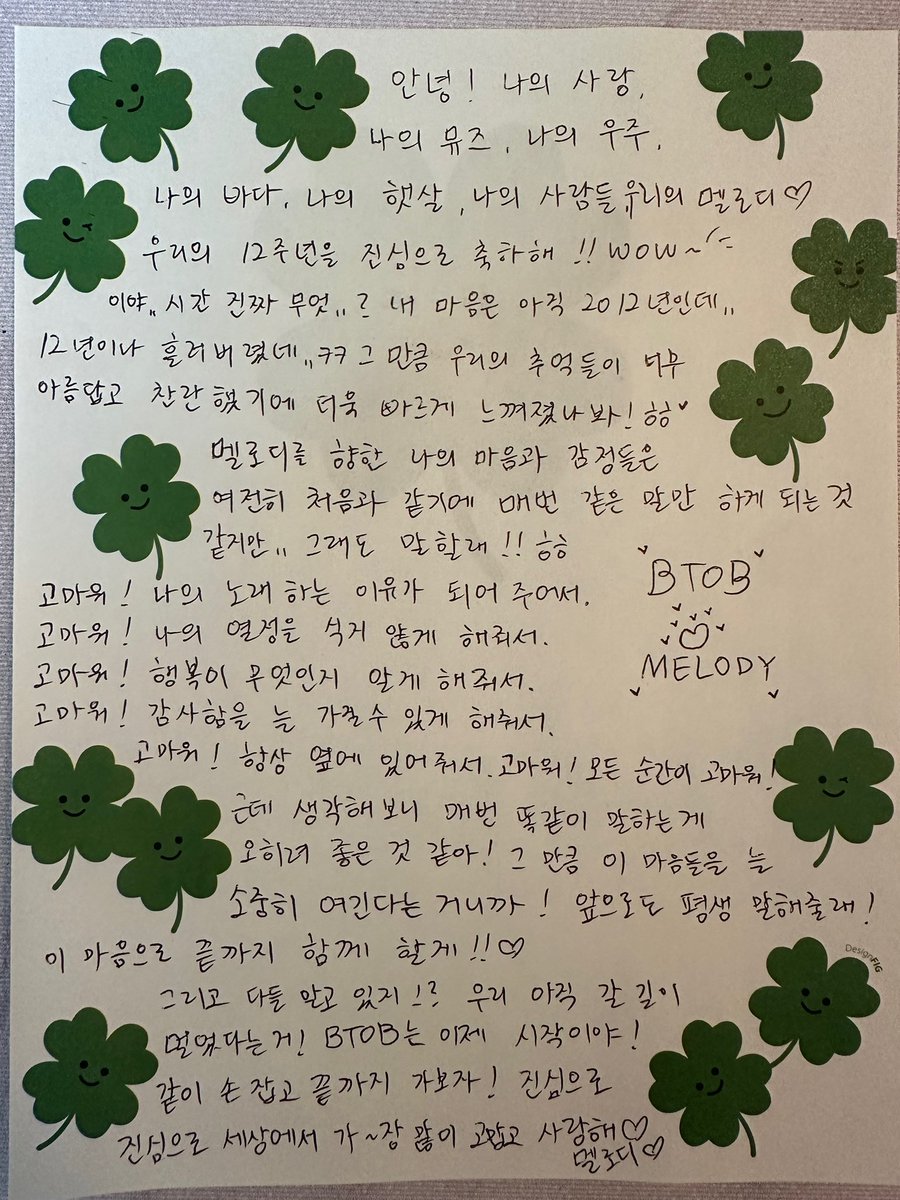 안녕! 나의 사랑,
나의 뮤즈, 나의 우주,
나의 바다, 나의 햇살, 나의 사람들, 우리의 멜로디♡
우리의 12주년을 진심으로 축하해!! WOW~
이야,, 시간 진짜 무엇,,? 내 마음은 아직 2012년인데,,
12년이나 흘러버렸네,,ㅋㅋ 그 만큼 우리의 추억들이 너무
아름답고 찬란했기에 더욱 빠르게 느껴졌나봐! ㅎㅎ
멜로디를 향한 나의 마음과 감정들은
여전히 처음과 같기에 매번 같은 말만 하게 되는 것
같지만,, 그래도 말할래!! ㅎㅎ
BTOB
♡
MELODY
고마워! 나의 노래하는 이유가 되어 주어서.
고마워! 나의 열정을 식지 않게 해줘서.
고마워! 행복이 무엇인지 알게 해줘서.
고마워! 감사함을 늘 가질수 있게 해줘서.
고마워! 항상 옆에 있어줘서. 고마워! 모든 순간이 고마워!
근데 생각해보니 매번 똑같이 말하는게
오히려 좋은 것 같아! 그 만큼 이 마음들을 늘
소중히 여긴다는 거니까! 앞으로도 평생 말해줄래!
이 마음으로 끝까지 함께 할게!!♡
DesignFIG
그리고 다들 알고 있지!? 우리 아직 갈 길이
멀었다는거! BTOB는 이제 시작이야!
같이 손 잡고 끝까지 가보자! 진심으로
진심으로 세상에서 가~장 많이 고맙고 사랑해♡
멜로디♡